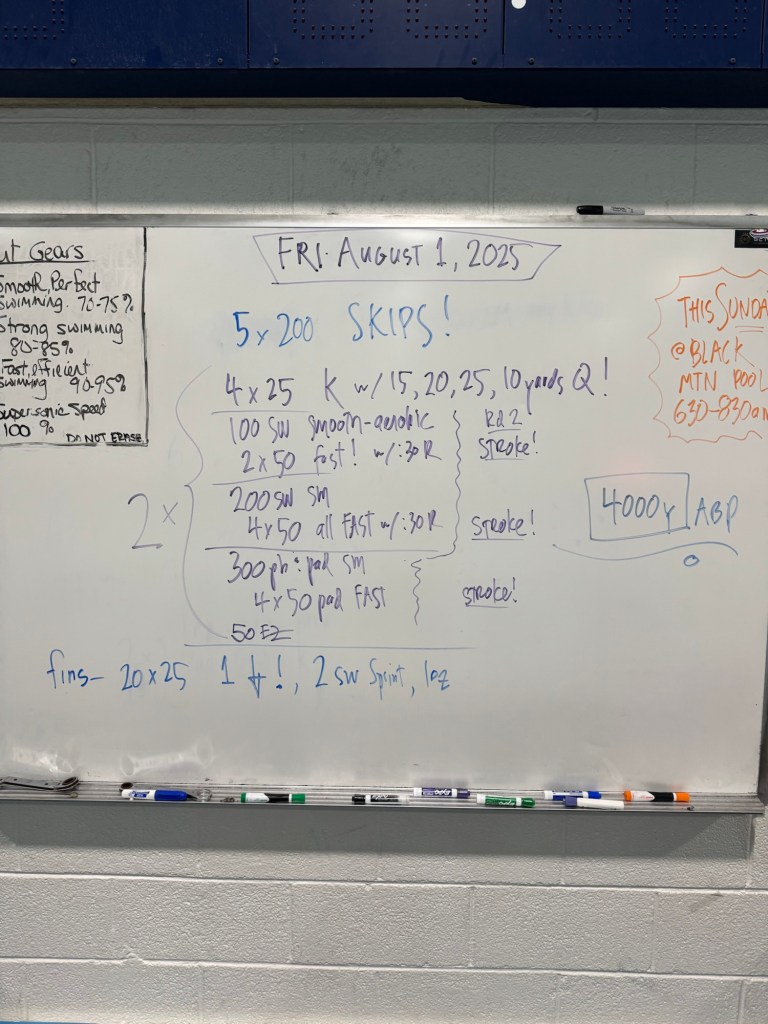 ut Gears
Smooth, Perfect
Swimming. 70-75%
Strong swimming
80-85%
Fast, efficient
swimming 90-95%
Supersonic Speed
100 %
DO NOT ERASE
FRI. AUGUST 1, 2025
5 x 200 SKIPS!
2 x
4 x 25 K w/ 15, 20, 25, 10 yards Q!
100 SW smooth-aerobic
2 x 50 fast! w/ :30 R
Rd 2
STROKE!
200 SW SM
4 x 50 all FAST w/ :30 R
STROKE!
300 pb : pad SM
4 x 50 pad FAST
STROKE!
50 EZ
fins- 20 x 25 1 !, 2 sw Sprint, 1ez
THIS SUNDA
@ BLACK
MTN POOL
630-830am
4000y ABP